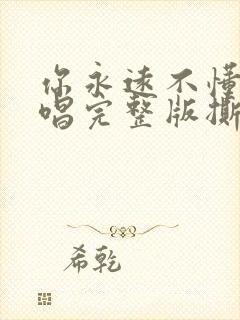 你永远不懂
唱完整版撕
希乾